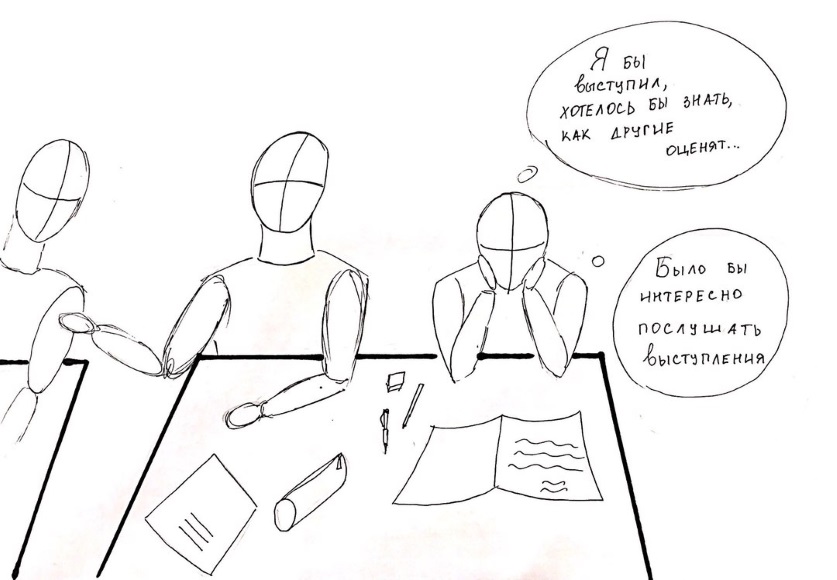 Я бы
выступил,
хотелось бы знать,
как другие
оценят...
Было бы
интересно
послушать
выступления